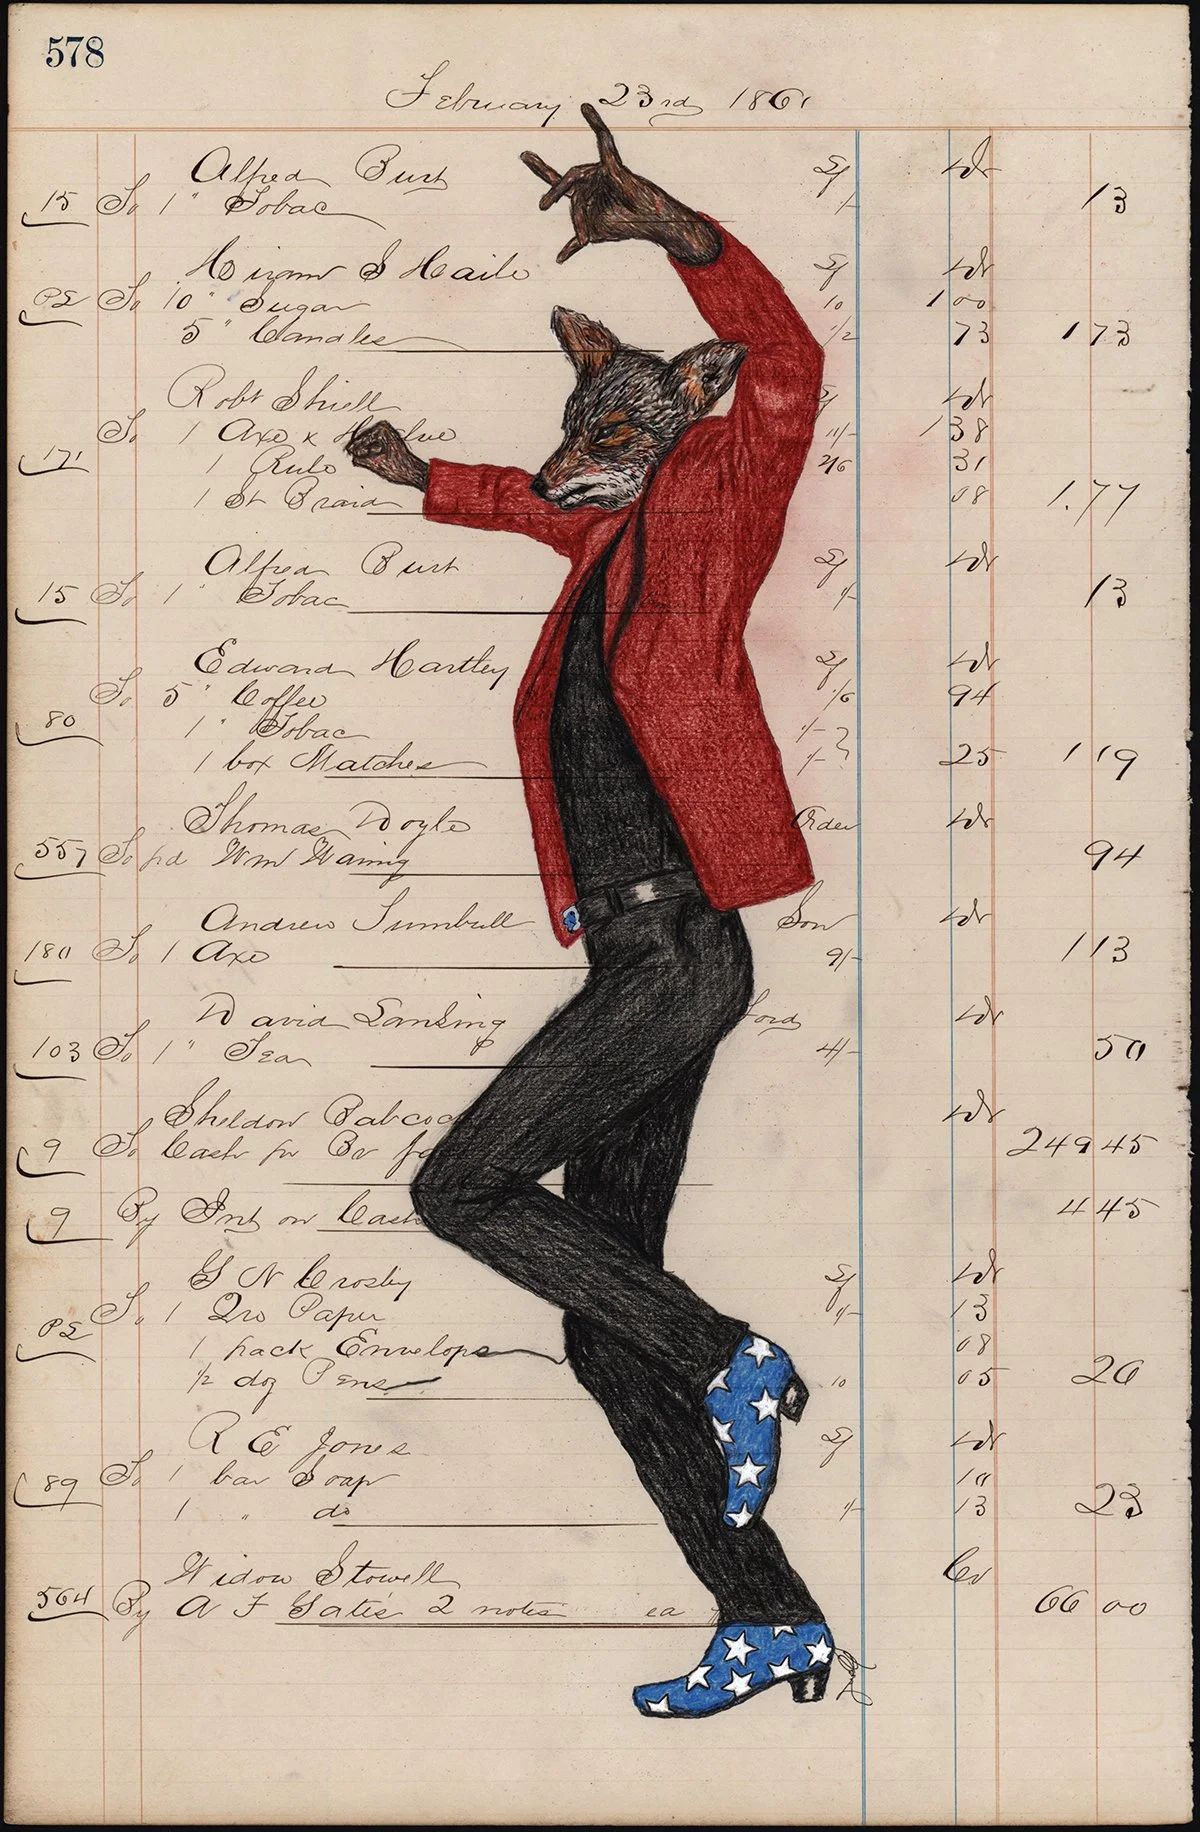 578
February 23rd 1861
Alfred Burt Sf Dr
15 To 1 " Tobac 1/- 13
Hiram S Haile Sf Dr
PS To 10 " Sugar 10 1 00
5 " Candles 1/2 73 1 73
Robt Shiell Sf Dr
To 1 Axe x 11/- 1 38
171 1 Rule 2/6 31
1 St Braid 08 1.77
Alfred Burt Sf Dr
15 To 1 " Tobac 1/- 13
Edward Hartley Sf Dr
To 5 " Coffee 1/6 94
80 1 " Tobac 1/-
1 box Matches 1/- 25 1 19
Thomas Doyle Order Dr
557 To pd Wm Waring 94
Andrew Turnbull Son Dr
180 To 1 Axe 9/- 1 13
David Lansing Dr
103 To 1 " Tea 4/- 50
Sheldon Babcoc Dr
9 To Cash for 249 45
9 By Int on Cash 4 45
G N Crosby Sf Dr
To 1 Qro Paper 1/- 13
PS 1 pack Envelops 08
1/2 doz Pens 10 05 26
R E Jones Sf Dr
89 To 1 bar Soap 10
1 " do 1/- 13 23
Widow Stowell Cr
564 By A F Gates 2 notes ea 66 00